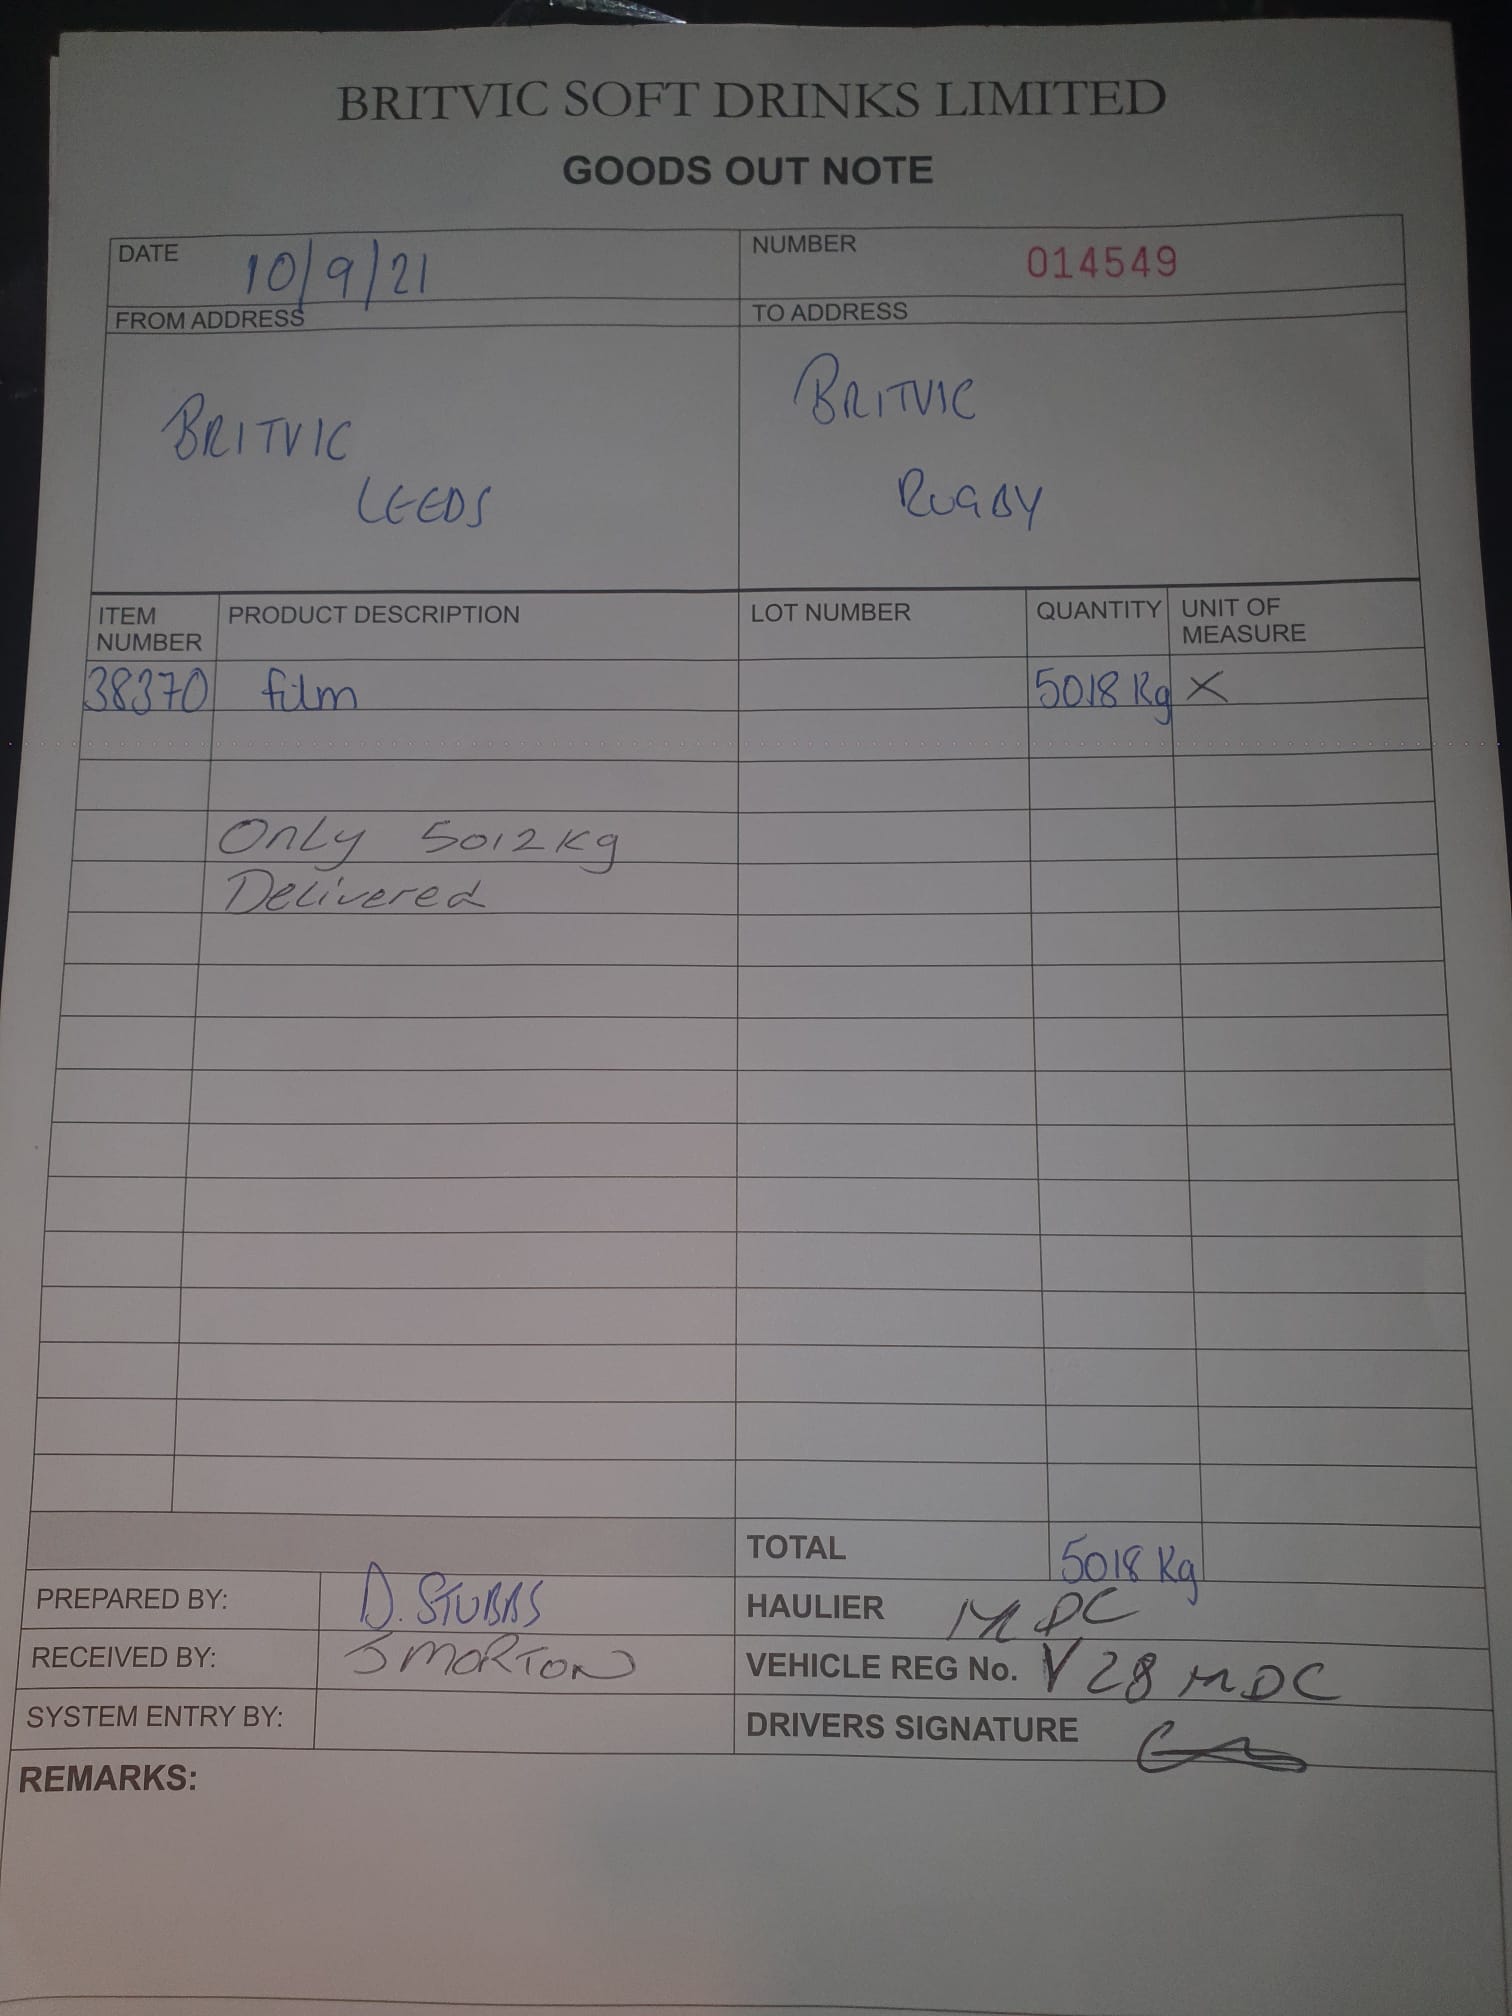 BRITVIC SOFT DRINKS LIMITED
GOODS OUT NOTE
DATE 10/9/21
NUMBER 014549
FROM ADDRESS
TO ADDRESS
BRITVIC
LEEDS
BRITVIC
RUGBY
ITEM NUMBER PRODUCT DESCRIPTION LOT NUMBER QUANTITY UNIT OF MEASURE
38370 film 5018 Kg X
Only 5012 Kg
Delivered
TOTAL 5018 Kg
PREPARED BY: D. STUBBS
HAULIER MDC
RECEIVED BY: J MORTON
VEHICLE REG No. V28 MDC
SYSTEM ENTRY BY:
DRIVERS SIGNATURE
REMARKS: